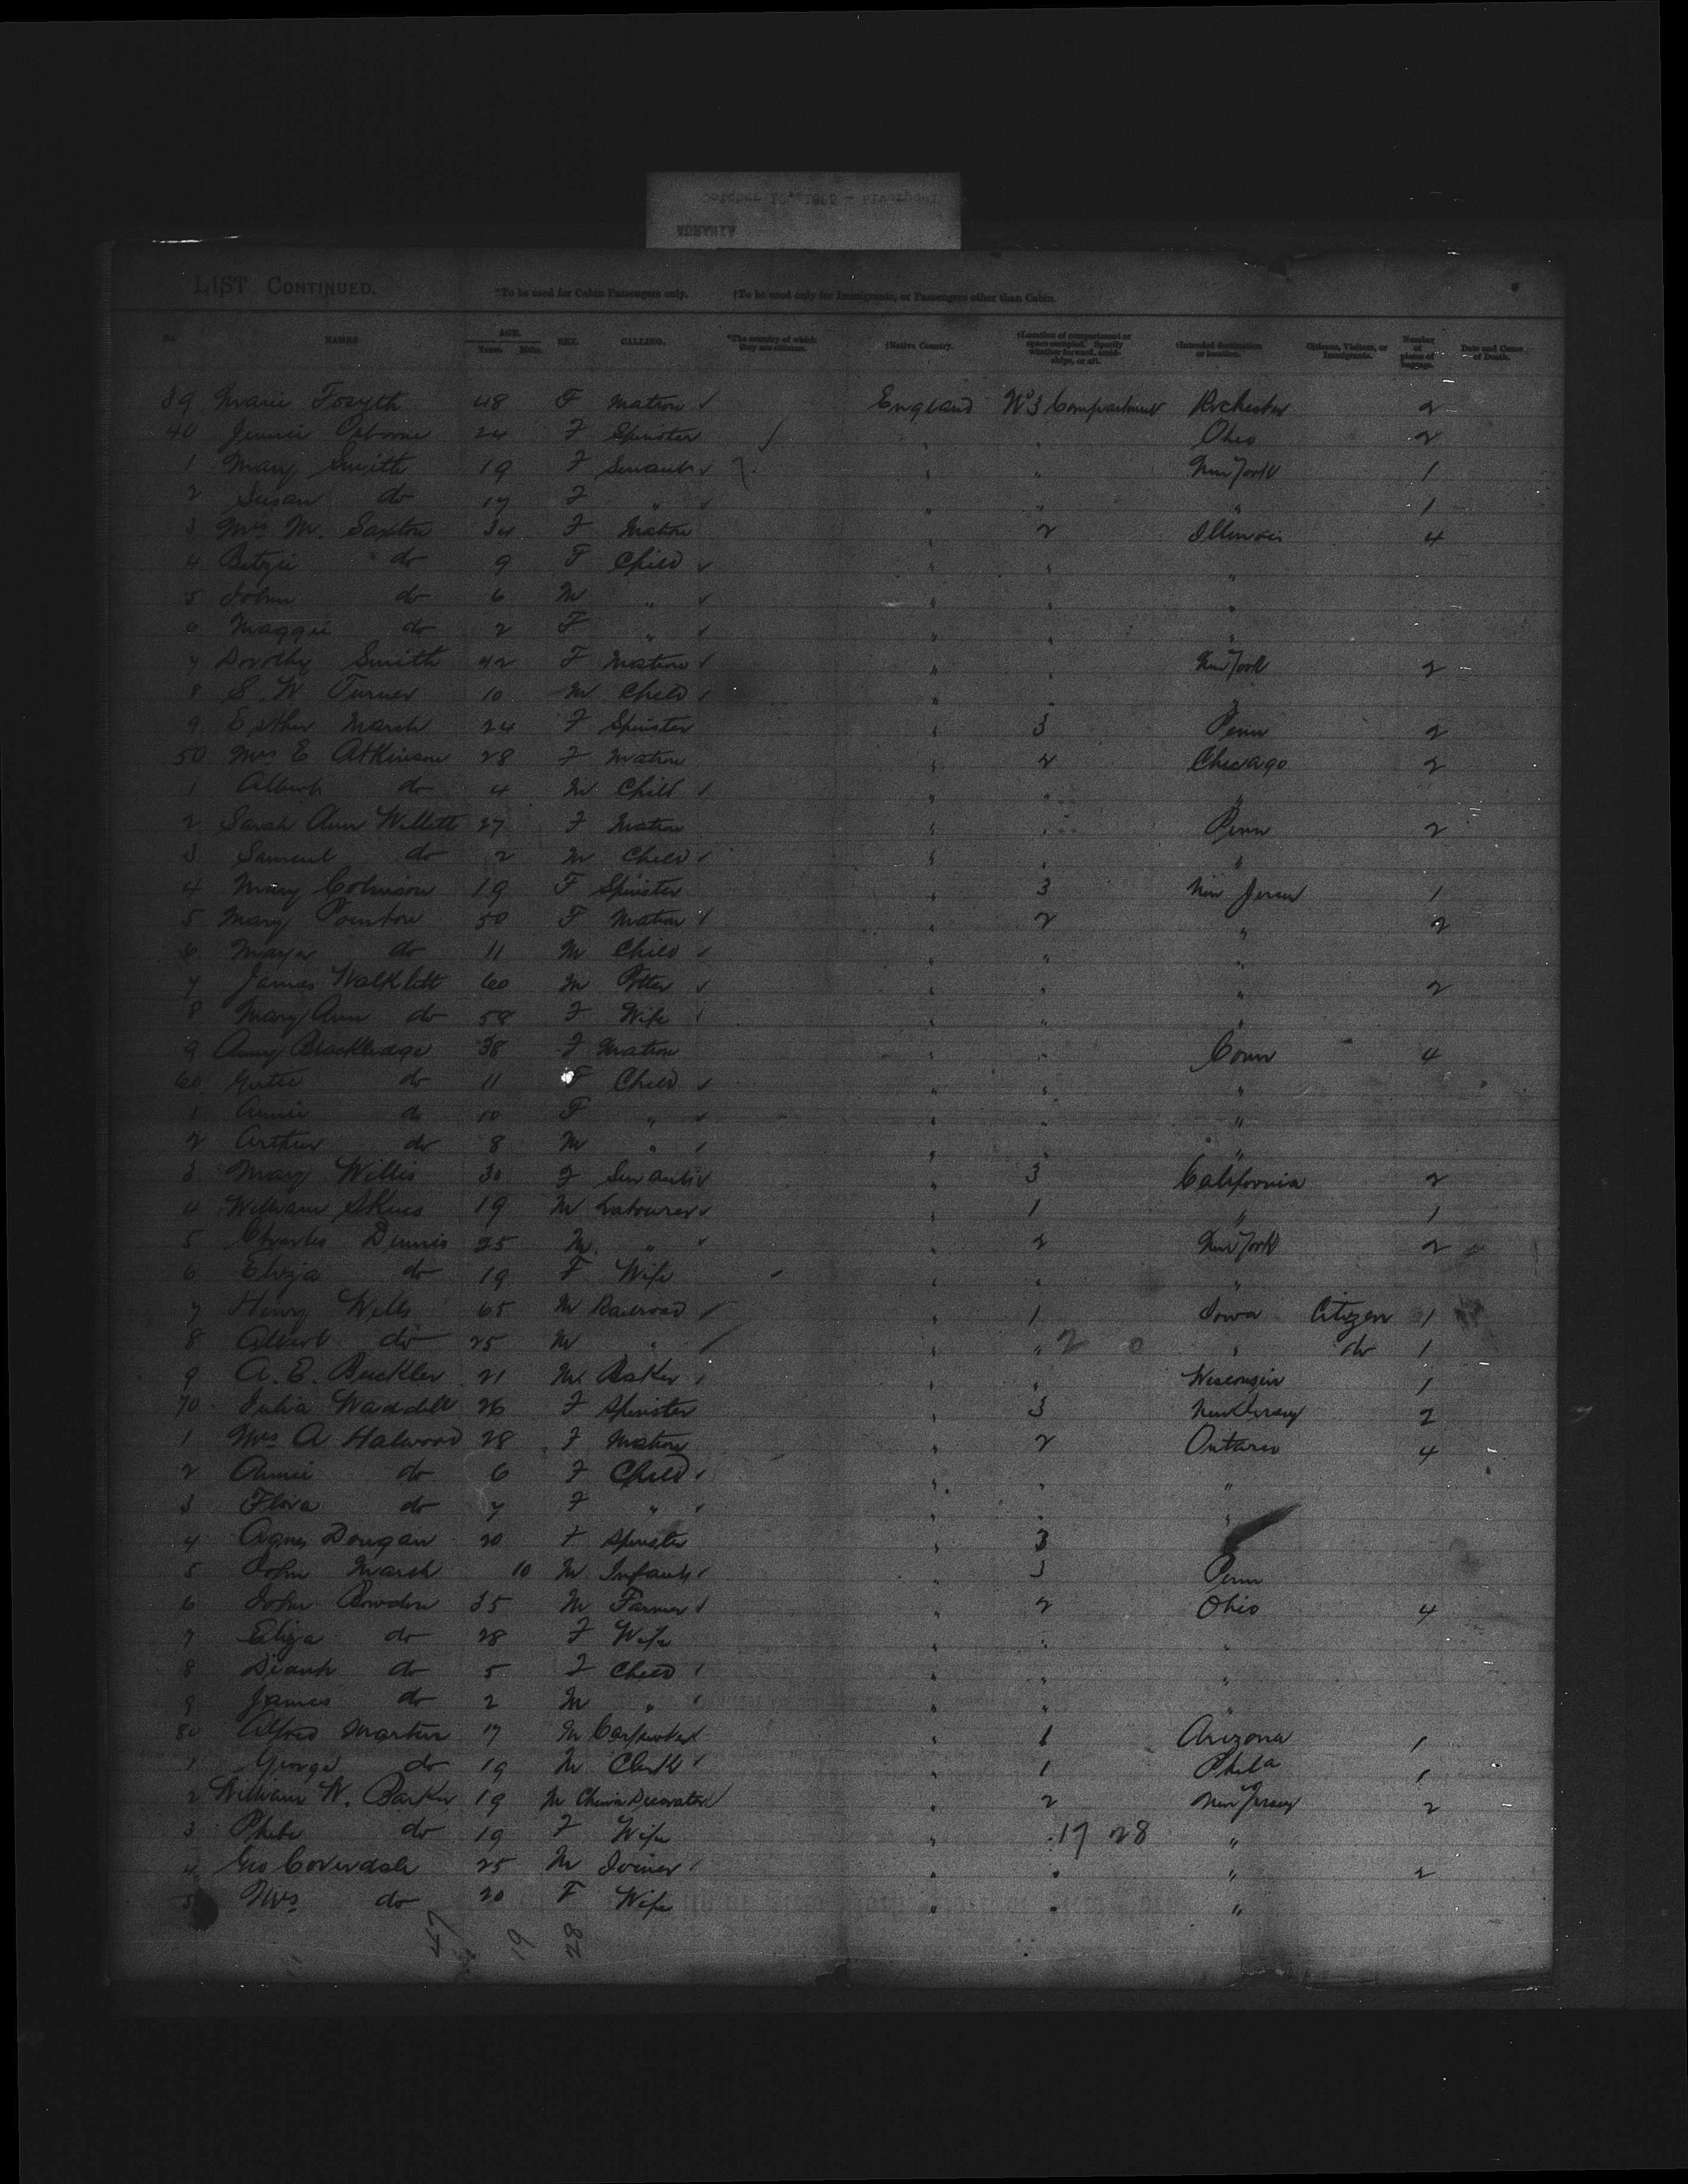 LIST CONTINUED.
*To be used for Cabin Passengers only. †To be used only for Immigrants, or Passengers other than Cabin.
No. NAMES AGE. Years. Mths. SEX. CALLING. *The country of which they are citizens. †Native Country. †Location of compartment or space occupied. Specify whether forward, amidships, or aft. †Intended destination or location. Citizens, Visitors, or Immigrants. Number of pieces of baggage. Date and Cause of Death.
39 Marie Fosyth 48 F Matron England No 3 Compartment Rochester 2
40 Jennie Osborne 24 F Spinster " " Ohio 2
1 Mary Smith 19 F Servant " " New York 1
2 Susan do 17 F " " " " 1
3 Mrs M. Saxton 34 F Matron " 2 Illinois 4
4 do 9 F Child " " "
5 John do 6 M " " " "
6 Maggie do 2 F " " " "
7 Dorothy Smith 42 F Matron " " New York 2
8 S. W Turner 10 M Child " " "
9 Esther Marsh 24 F Spinster " 3 Penn 2
50 Mrs E Atkinson 28 F Matron " 2 Chicago 2
1 Albert do 4 M Child " " "
2 Sarah Ann Willett 27 F Matron " " Penn 2
3 Samuel do 2 M Child " " "
4 Mary 19 F Spinster " 3 New Jersey 1
5 Mary Pointon 50 F Matron " 2 " 2
6 do 11 M Child " " "
7 James Walklett 60 M Potter " " " 2
8 Mary Ann do 58 F Wife " " "
9 Amy Blackledge 38 F Matron " " Conn 4
60 Gertie do 11 F Child " " "
1 Annie do 10 F " " " "
2 Arthur do 8 M " " " "
3 Mary Willis 30 F Servant " 3 California 2
4 William 19 M Labourer " 1 " 1
5 Charles Dennis 25 M " " 2 New York 2
6 Eliza do 19 F Wife " " "
7 Henry Wells 65 M Railroad " 1 Iowa Citizen 1
8 Albert do 25 M " " " 2 0 " do 1
9 A. E. Buckler 21 M Baker " " Wisconsin 1
70 Julia Waddell 26 F Spinster " 3 New Jersey 2
1 Mrs A Halwood 28 F Matron " 2 Ontario 4
2 Annie do 6 F Child " " "
3 Flora do 7 F " " " "
4 Agnes Dougan 20 F Spinster " 3
5 John Marsh 10 M Infant " 3 Penn
6 John Bowdon 35 M Farmer " 2 Ohio 4
7 Eliza do 28 F Wife " " "
8 do 5 F Child " " "
9 James do 2 M " " " "
80 Alfred Martin 17 M Carpenter " 1 Arizona 1
1 George do 19 M Clerk " 1 Phila 1
2 William W. Barker 19 M China Decorator " 2 New Jersey 2
3 Phebe do 19 F Wife " 17 28 "
4 Geo Coverdale 25 M Joiner " " " 2
5 Mrs do 20 F Wife " " "
47 19 28